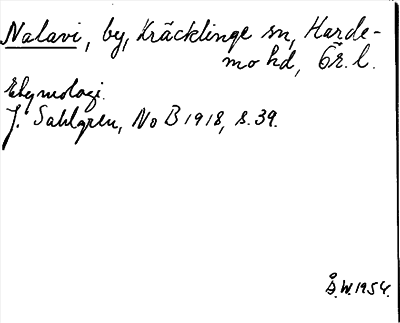 Nalavi, by, Kräcklinge sn, Harde-
mo hd, Ör. l.
Etymologi.
J. Sahlgren, NoB 1918, s. 39.
Å.W. 1954.